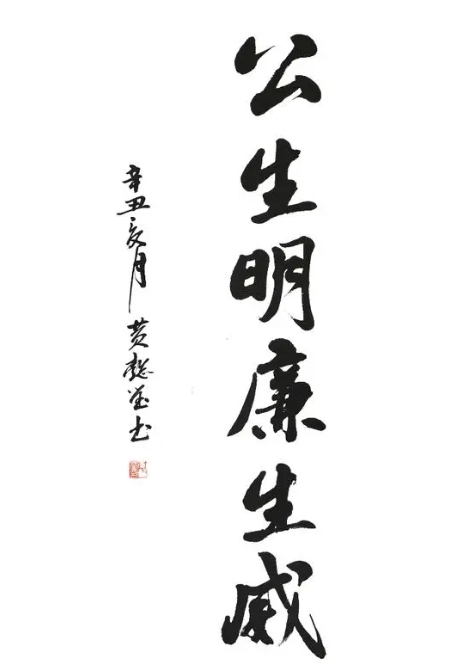 公生明廉生威
辛丑亥月
黄懿 书